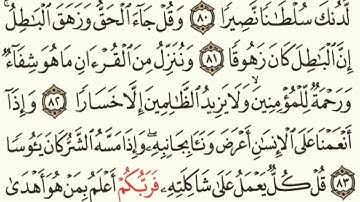 لَّدُنكَ سُلْطَٰنًا نَّصِيرًا ۝٨٠ وَقُلْ جَآءَ ٱلْحَقُّ وَزَهَقَ ٱلْبَٰطِلُ ۚ
إِنَّ ٱلْبَٰطِلَ كَانَ زَهُوقًا ۝٨١ وَنُنَزِّلُ مِنَ ٱلْقُرْءَانِ مَا هُوَ شِفَآءٌ
وَرَحْمَةٌ لِّلْمُؤْمِنِينَ ۙ وَلَا يَزِيدُ ٱلظَّٰلِمِينَ إِلَّا خَسَارًا ۝٨٢ وَإِذَآ
أَنْعَمْنَا عَلَى ٱلْإِنسَٰنِ أَعْرَضَ وَنَـَٔا بِجَانِبِهِۦ ۖ وَإِذَا مَسَّهُ ٱلشَّرُّ كَانَ يَـُٔوسًا
۝٨٣ قُلْ كُلٌّ يَعْمَلُ عَلَىٰ شَاكِلَتِهِۦ فَرَبُّكُمْ أَعْلَمُ بِمَنْ هُوَ أَهْدَىٰ